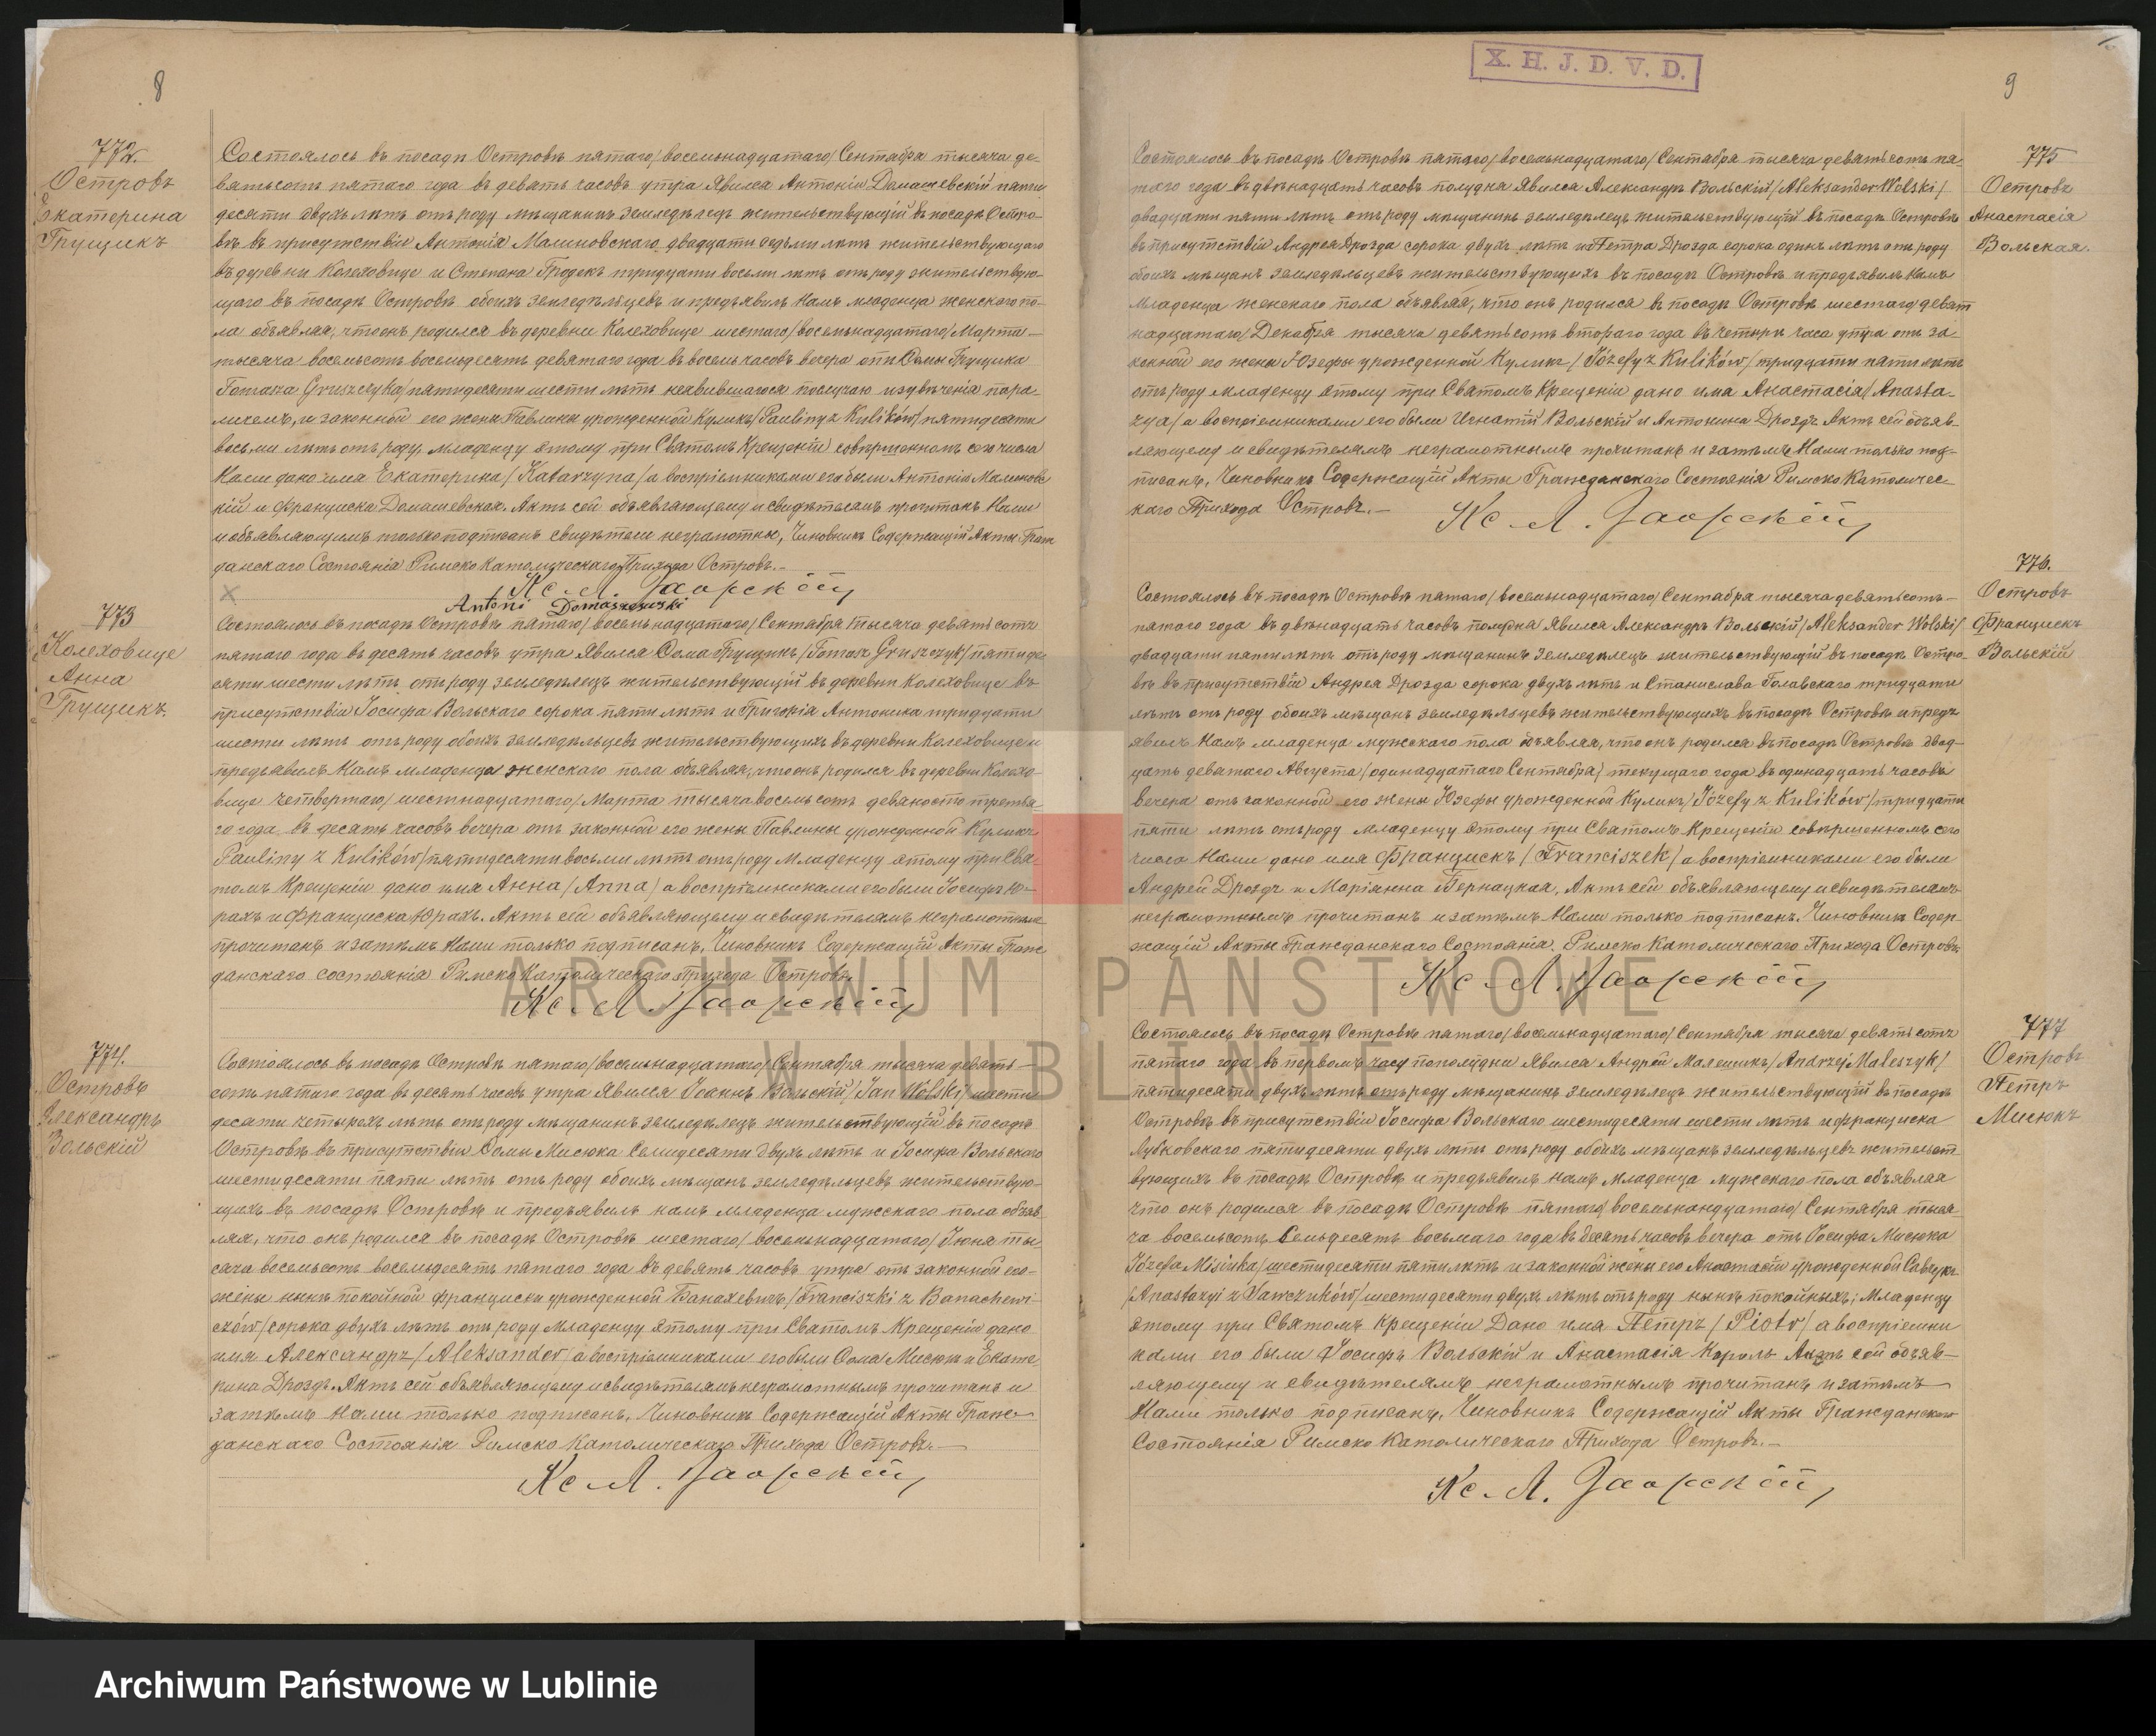 8
772.
Островъ
Екатерина
Грущикъ
Состоялось въ посадѣ Островѣ пятаго/восемьнадцатаго/Сентября тысяча де-
вятьсотъ пятаго года въ девять часовъ утра Явился Антоній Домашевскій пяти
десяти двухъ лѣтъ отъ роду мѣщанинъ земледѣлецъ жительствующій въ посадѣ Остро-
вѣ въ присутствіи Антонія Малиновскаго двадцати седьми лѣтъ жительствующаго
въ деревни Колеховице и Степана Гродекъ тридцати восьми лѣтъ отъ роду жительствую-
щаго въ посадѣ Островѣ обоихъ земледѣльцевъ и предъявилъ Намъ младенца женскаго по-
ла объявляя, что онъ родился въ деревни Колеховице шестаго/восемьнадцатаго/Марта-
тысяча восемьсотъ восемьдесятъ девятаго года въ восемь часовъ вечера отъ Ѳомы Грущика
Tomasza Gruszczyka/пятидесяти шести лѣтъ неявившагося по случаю пара-
личемъ, и законной его жены Павлины урожденной Куликъ/Pauliny z Kulików/пятидесяти
восьми лѣтъ отъ роду, младенцу этому при Святомъ Крещеніи совершенномъ сего числа
Нами дано имя Екатерина/Katarzyna/а воспріемниками его были Антоній Малиновс
кій и Франциска Домашевская. Актъ сей объявляющему и свидѣтелямъ прочитанъ Нами
и объявляющимъ только подписанъ свидѣтели неграмотны, Чиновникъ Содержащій Акты Граж
данскаго Состоянія Римско Католическаго Прихода Островъ.-
Кс. Л. Заорскій
Antoni Domaszewski
773
Колеховице
Анна
Грущикъ.
Состоялось въ посадѣ Островѣ пятаго/восемьнадцатаго/Сентября тысяча девятьсотъ
пятаго года въ десять часовъ утра Явился Ѳома Грущикъ/Tomasz Gruszczyk/пятиде
сяти шести лѣтъ отъ роду земледѣлецъ жительствующій въ деревни Колеховице въ
присутствіи Іосифа Вольскаго сорока пяти лѣтъ и Григорія Антоника тридцати
шести лѣтъ отъ роду обоихъ земледѣльцевъ жительствующихъ въ деревни Колеховице и
предъявилъ Намъ младенца женскаго пола объявляя, что онъ родился въ деревни Колехо-
вице четвертаго/шестнадцатаго/Марта тысяча восемьсотъ девяносто третья-
го года въ десять часовъ вечера отъ законной его жены Павлины урожденной Куликъ
Pauliny z Kulików/пятидесяти восьми лѣтъ отъ роду Младенцу этому при Свя-
томъ Крещеніи дано имя Анна/Anna/а воспріемниками его были Іосифъ Ю-
рахъ и Франциска Юрахъ. Актъ сей объявляющему и свидѣтелямъ неграмотнымъ
прочитанъ и затѣмъ Нами только подписанъ, Чиновникъ Содержащій Акты Граж
данскаго состоянія Римско Католическаго Прихода Островъ
Кс. Л. Заорскій
774.
Островъ
Александръ
Вольскій
Состоялось въ посадѣ Островѣ пятаго/восемьнадцатаго/Сентября тысяча девять-
сотъ пятаго года въ десять часовъ утра Явился Іоаннъ Вольскій/Jan Wolski/шести
десяти четырехъ лѣтъ отъ роду мѣщанинъ земледѣлецъ жительствующій въ посадѣ
Островѣ въ присутствіи Ѳомы Мисюка Семидесяти двухъ лѣтъ и Іосифа Вольскаго
шестидесяти пяти лѣтъ отъ роду обоихъ мѣщанъ земледѣльцевъ жительствую-
щихъ въ посадѣ Островѣ и предъявилъ намъ младенца мужескаго пола объяв
ляя, что онъ родился въ посадѣ Островѣ шестаго/восемьнадцатаго/Іюня ты-
сяча восемьсотъ восемьдесятъ пятаго года въ девять часовъ утра отъ законной его-
жены нынѣ покойной Франциски урожденной Банахевичъ/Franciszki z Banachewi-
czów/сорока двухъ лѣтъ отъ роду Младенцу этому при Святомъ Крещеніи дано
имя Александръ/Aleksander/а воспріемниками его были Ѳома Мисюкъ и Екате
рина Дроздъ. Актъ сей объявляющему и свидѣтелямъ неграмотнымъ прочитанъ и
затѣмъ Нами только подписанъ, Чиновникъ Содержащій Акты Граж-
данскаго Состоянія Римско Католическаго Прихода Островъ.-
Кс. Л. Заорскій
X. H. J. D. V. D.
9
775
Островъ
Анастасія
Вольская.
Состоялось въ посадѣ Островѣ пятаго/восемьнадцатаго/Сентября тысяча девятьсотъ пя
таго года въ двѣнадцать часовъ полудня Явился Александръ Вольскій/Aleksander Wolski/
двадцати пяти лѣтъ отъ роду мѣщанинъ земледѣлецъ жительствующій въ посадѣ Островѣ
въ присутствіи Андрея Дрозда сорока двухъ лѣтъ и Петра Дрозда сорока одинъ лѣтъ отъ роду
обоихъ мѣщанъ земледѣльцевъ жительствующихъ въ посадѣ Островѣ и предъявилъ Намъ
Младенца женскаго пола объявляя, что онъ родился въ посадѣ Островѣ шестаго/девят
надцатаго/Декабря тысяча девятьсотъ втораго года въ четыри часа утра отъ за-
конной его жены Юзефы урожденной Куликъ/Józefy z Kulików/тридцати пяти лѣтъ
отъ роду Младенцу этому при Святомъ Крещеніи дано имя Анастасія/Anasta-
zya/а воспріемниками его были Игнатій Вольскій и Антонина Дроздъ Актъ сей объяв-
ляющему и свидѣтелямъ неграмотнымъ прочитанъ и затѣмъ Нами только под-
писанъ, Чиновникъ Содержащій Акты Гражданскаго Состоянія Римско Католичес-
каго Прихода Островъ.-
Кс Л. Заорскій
776.
Островъ
Францискъ
Вольскій
Состоялось въ посадѣ Островѣ пятаго/восемьнадцатаго/Сентября тысяча девятьсотъ-
пятаго года въ двѣнадцать часовъ полудня Явился Александръ Вольскій/Aleksander Wolski/
двадцати пяти лѣтъ отъ роду мѣщанинъ земледѣлецъ жительствующій въ посадѣ Остро-
вѣ въ присутствіи Андрея Дрозда сорока двухъ лѣтъ и Станислава Голавскаго тридцати
лѣтъ отъ роду обоихъ мѣщанъ земледѣльцевъ жительствующихъ въ посадѣ Островѣ и предъ
явилъ Намъ младенца мужескаго пола объявляя, что онъ родился въ посадѣ Островѣ двад-
цать девятаго Августа/одинадцатаго Сентября/текущаго года въ одинадцать часовъ
вечера отъ законной его жены Юзефы урожденной Куликъ/Józefy z Kulików/тридцати
пяти лѣтъ отъ роду младенцу этому при Святомъ Крещеніи совершенномъ сего
числа Нами дано имя Францискъ/Franciszek/а воспріемниками его были
Андрей Дроздъ и Маріанна Бернацкая, Актъ сей объявляющему и свидѣтелямъ
неграмотнымъ прочитанъ и затѣмъ Нами только подписанъ. Чиновникъ Содер
жащій Акты Гражданскаго Состоянія. Римско Католическаго Прихода Островъ.
Кс Л. Заорскій
777
Островъ
Петръ
Мисюкъ
Состоялось въ посадѣ Островѣ пятаго/восемьнадцатаго/Сентября тысяча девятьсотъ
пятаго года въ первомъ часу пополудни Явился Андрей Малещикъ/Andrzej Maleszyk/
пятидесяти двухъ лѣтъ отъ роду мѣщанинъ земледѣлецъ жительствующій въ посадѣ
Островѣ въ присутствіи Іосифа Вольскаго шестидесяти шести лѣтъ и Франциска
Лубковскаго пятидесяти двухъ лѣтъ отъ роду обоихъ мѣщанъ земледѣльцевъ жительст
вующихъ въ посадѣ Островѣ и предъявилъ Намъ Младенца мужескаго пола объявляя
что онъ родился въ посадѣ Островѣ пятаго/восемьнадцатаго/Сентября тыся
ча восемьсотъ Семьдесятъ восьмаго года въ десять часовъ вечера отъ Іосифа Мисюка
Józefa Misiuka/шестидесяти пяти лѣтъ и законной жены его Анастасіи урожденной Савчукъ
/Anastazyi z Sawczuków/шестидесяти двухъ лѣтъ отъ роду нынѣ покойныхъ; Младенцу
этому при Святомъ Крещеніи Дано имя Петръ/Piotr/а воспріемни
ками его были Іосифъ Вольскій и Анастасія Король Актъ сей объяв-
ляющему и свидѣтелямъ неграмотнымъ прочитанъ и затѣмъ
Нами только подписанъ, Чиновникъ Содержащій Акты Гражданскаго
Состоянія Римско Католическаго Прихода Островъ.-
Кс. Л. Заорскій
ARCHIWUM PAŃSTWOWE
W LUBLINIE
Archiwum Państwowe w Lublinie